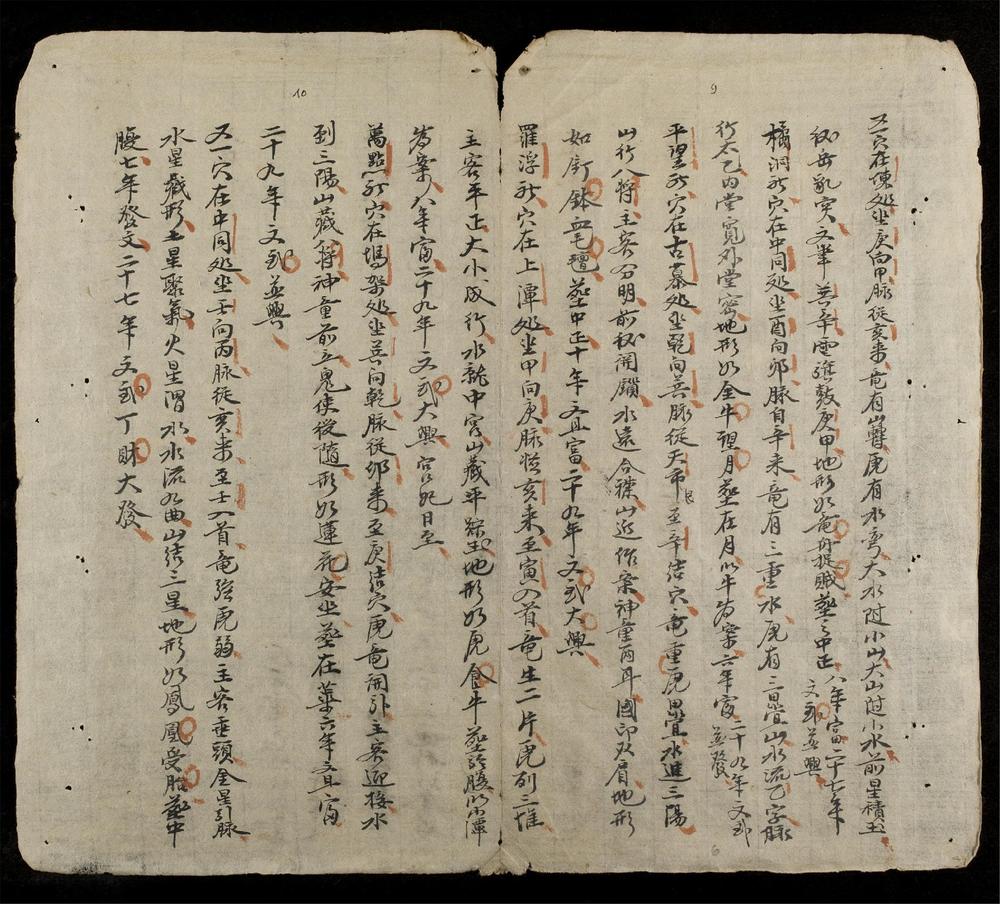 9
又一穴在陳処坐庚向甲脉從亥来竜有䜌虎有水弯大水附小山大山附小水前星積玉
秘每乱実文筆兵辛雲進数庚甲地形如竜舟捉賊葬之中正八年富二十七年文武並興
橘洞社穴在中同処坐酉向卯脉自辛来竜有三重水虎有三畳山水流乙字脉
行太乙内堂寛外堂密地形如金牛望月葬在月以牛為案六年富二十九年文武並發
平望社穴在古墓処坐乾向巽脉從天市艮至辛结穴竜重虎畳水進三陽
山行八将主客分明前秘開鎖水遠合襟山近作案神童両耳國印双肩地形
如新鉢血毛葬中正十年文且富二十九年文武大興
羅浮社穴在上潭処坐甲向庚脉從亥来至寅入首竜生二片虎列三堆
10
主客平正大小成行水龍中宮山藏平綜土地形如虎食牛葬於腹以小潭
為案八年富二十九年文武大興官妃日至
萬點社穴在塢架処坐巽向乾脉從卯来至庚结穴虎竜開引主客迎接水
到三陽山藏八将神童前立鬼使後随形如蓮花安坐葬在葉六年文且富
二十九年文武並興
又一穴在中同処坐壬向丙脉從亥来至壬入首竜强虎弱主客垂頭金星引脉
水星截形土星聚氣火星滑水水流九曲山结三星地形如鳳凰受胎葬中
腹七年發文二十七年文武丁財大發